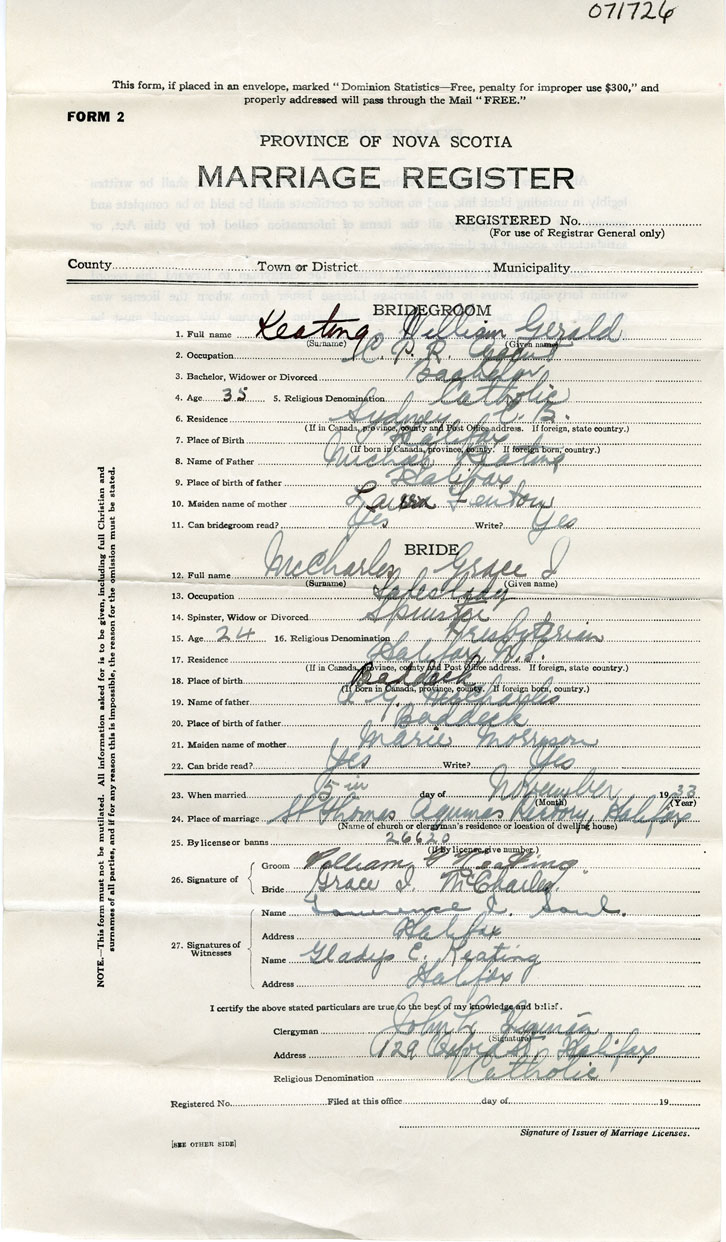 071726
This form, if placed in an envelope, marked "Dominion Statistics—Free, penalty for improper use $300," and
properly addressed will pass through the Mail "FREE."
FORM 2
PROVINCE OF NOVA SCOTIA
MARRIAGE REGISTER
REGISTERED No.
(For use of Registrar General only)
County Town or District Municipality
BRIDEGROOM
1. Full name Keating William Gerald
(Surname) (Given name)
2. Occupation C. P. R. Agent
3. Bachelor, Widower or Divorced Bachelor
4. Age 35 5. Religious Denomination Catholic
6. Residence Sydney C. B.
(If in Canada, province, county and Post Office address. If foreign, state country.)
7. Place of Birth Halifax
(If born in Canada, province, county. If foreign born, country.)
8. Name of Father Michael Keating
9. Place of birth of father Halifax
10. Maiden name of mother Fenton
11. Can bridegroom read? Yes Write? Yes
BRIDE
12. Full name McCharles Grace I
(Surname) (Given name)
13. Occupation Saleslady
14. Spinster, Widow or Divorced Spinster
15. Age 24 16. Religious Denomination Presbyterian
17. Residence Halifax N.S.
(If in Canada, province, county and Post Office address. If foreign, state country.)
18. Place of birth Baddeck
(If born in Canada, province, county. If foreign born, country.)
19. Name of father McCharles
20. Place of birth of father Baddeck
21. Maiden name of mother Marie Morrison
22. Can bride read? Yes Write? Yes
23. When married day of November 1933
(Month) (Year)
24. Place of marriage St Thomas Aquinas Rectory, Halifax
(Name of church or clergyman's residence or location of dwelling house)
25. By license or banns 26620
(If by license give number.)
26. Signature of Groom William G Keating
Bride Grace I. McCharles
27. Signatures of Witnesses Name Lawrence Soul.
Address Halifax
Name Gladys E. Keating
Address Halifax
I certify the above stated particulars are true to the best of my knowledge and belief.
Clergyman John L
(Signature)
Address 129 Halifax
Religious Denomination Catholic
Registered No. Filed at this office day of 19
Signature of Issuer of Marriage Licenses.
[SEE OTHER SIDE]
NOTE.—This form must not be mutilated. All information asked for is to be given, including full Christian and
surnames of all parties, and if for any reason this is impossible, the reason for the omission must be stated.